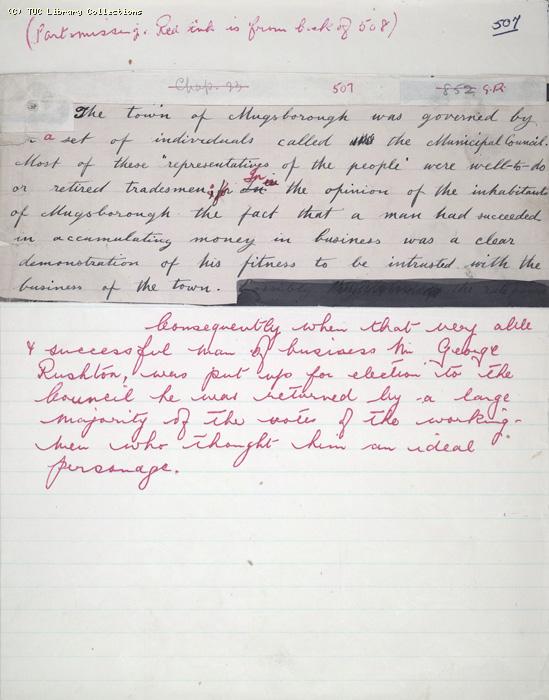 (C) TUC Library Collections
(Part missing. Red ink is from back of 508)
507
Chap. 507 852 G.R.
The town of Mugsborough was governed by
a set of individuals called the Municipal Council.
Most of these "representatives of the people" were well-to-do
or retired tradesmen; In the opinion of the inhabitants
of Mugsborough the fact that a man had succeeded
in accumulating money in business was a clear
demonstration of his fitness to be intrusted with the
business of the town.
Consequently when that very able
& successful man of business Mr George
Rushton, was put up for election to the
Council he was returned by a large
majority of the votes of the working-
men who thought him an ideal
personage.